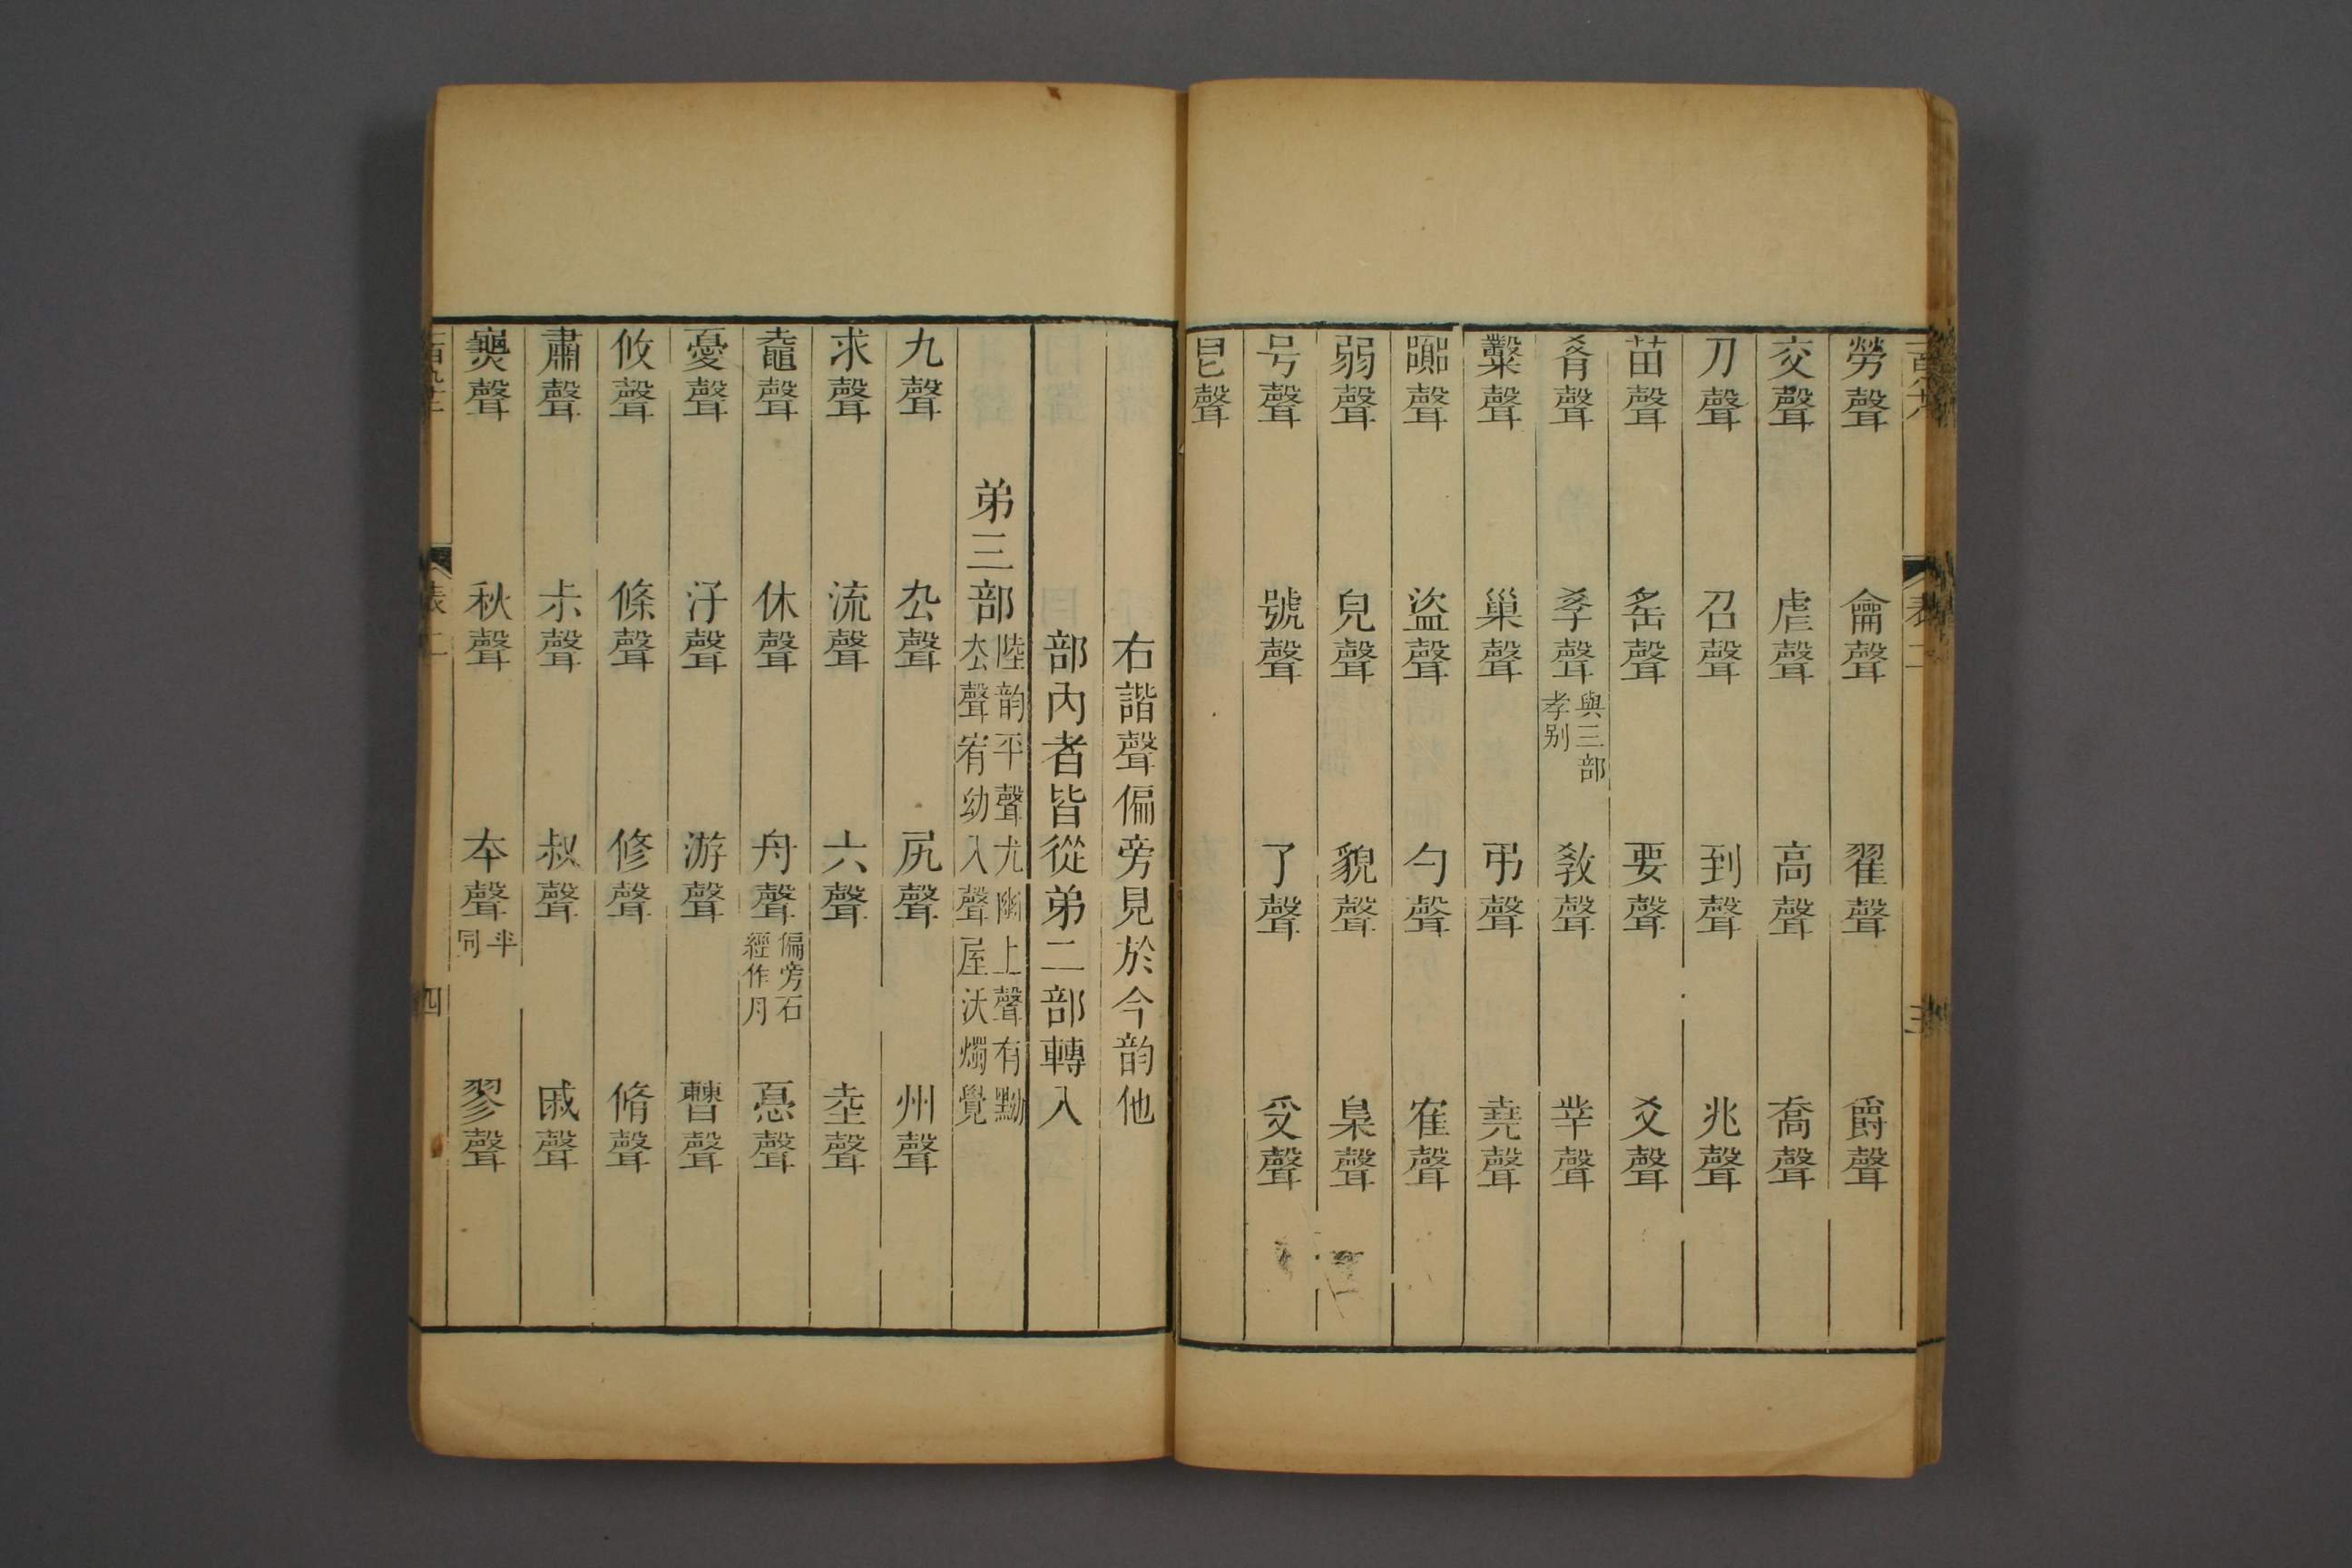 勞聲 龠聲 翟聲 爵聲
交聲 虐聲 高聲 喬聲
刀聲 召聲 到聲 兆聲
苗聲 䍃聲 要聲 爻聲
肴聲 孝聲 與三部孝别 教聲 丵聲
糳聲 巢聲 弔聲 堯聲
盜聲 勺聲 隺聲
弱聲 皃聲 貌聲 梟聲
号聲 號聲 了聲 受聲
皀聲
右諧聲偏旁見於今韵他
部內者皆從弟二部轉入
弟三部 陸韵平聲尤幽上聲有黝厺聲宥幼入聲屋沃燭覺
九聲 厹聲 尻聲 州聲
求聲 流聲 六聲 坴聲
鼀聲 休聲 舟聲 偏旁石經作月 𢝊聲
憂聲 汓聲 游聲 聲
攸聲 條聲 修聲 脩聲
肅聲 尗聲 叔聲 戚聲
聲 秋聲 夲聲 𠦍同 翏聲
表二
四